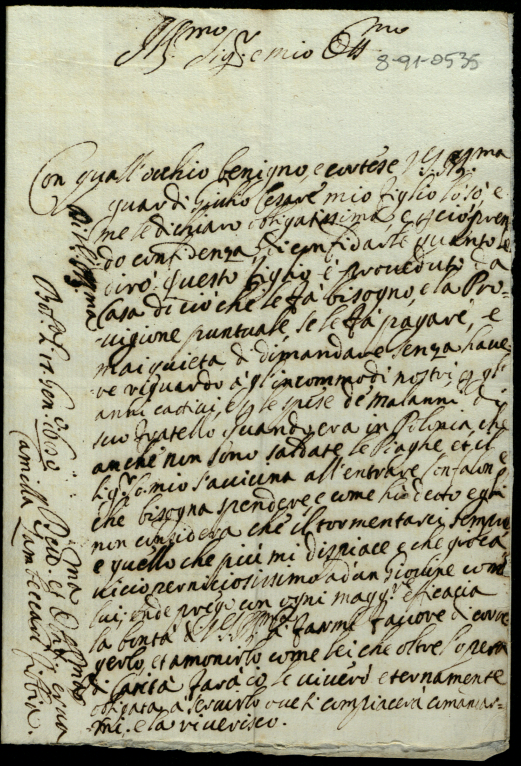 Ill.mo
Sig.r e mio
8-91-0535
Con quall'occhio benigno, e cortese
guardi Giulio Cesare mio figlio lo sò, e
me le dichiaro obligatissima, e
do confidenza di confidarle quanto le
dirò. Questo figlio è proveduto da
Casa di ciò che le fà bisogno, e la Pro-
vigione puntuale se le fà pagare, e
mai quieta di dimandare senza have-
re riguardo à gl'incommodi nostri
anni cativi, e le spese de malanni di
suo fratello quando era in Polonia, che
anche non sono saldate le Piaghe et il
Sig.r mio s'avicina all'entrare Confalon.e
che bisogna spendere, e come hò detto egli
non considera che il tormentarci sempre
e quello che più mi dispiace è che gioca
vicio perniciosissimo ad un giovine come
lui; onde prego con ogni magg.r efficacia
la bontà di farme favore di corre-
gerlo, et amonirlo, come lei che oltre l'opera
di Carità farà, io le viverò eternamente
obligata à servirlo ove si compiacerà comandar-
mi, e la riverisco.
Di V.S. Ill.ma
Bol.a li 12 Gen.o
Dev.ma et Obl.ma Serva
Camilla Zambeccari